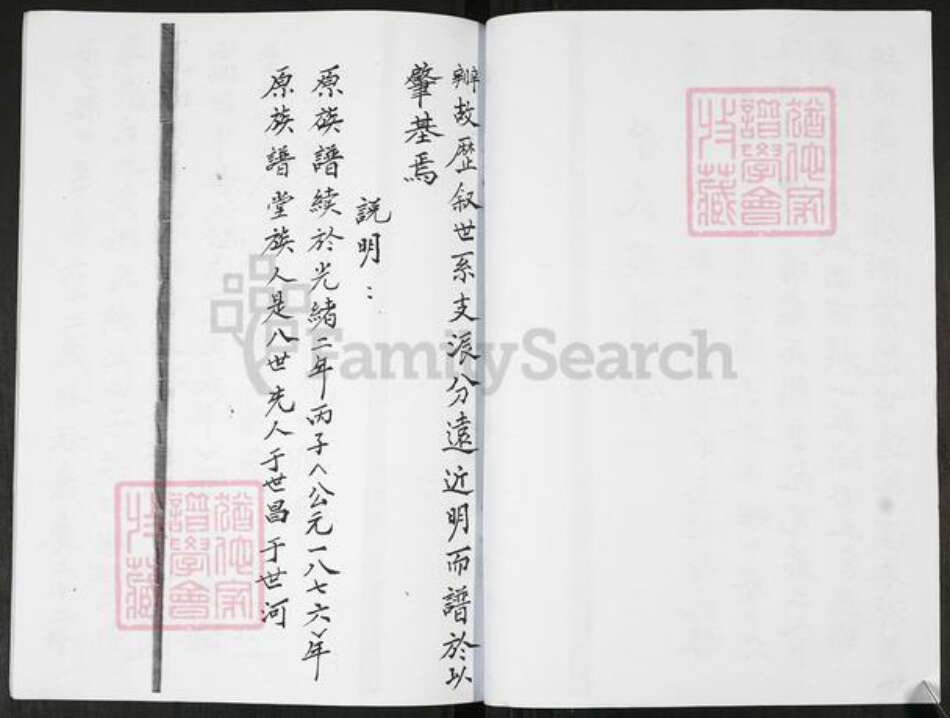 辦故歷叙世系支派分遠近明而譜於以
肇基焉
説明：
原族譜續於光緒二年丙子〈公元一八七六〉年
原族譜堂族人是八世先人于世昌于世河
猶他家
譜學會
收藏
猶他家
譜學會
收藏
FamilySearch